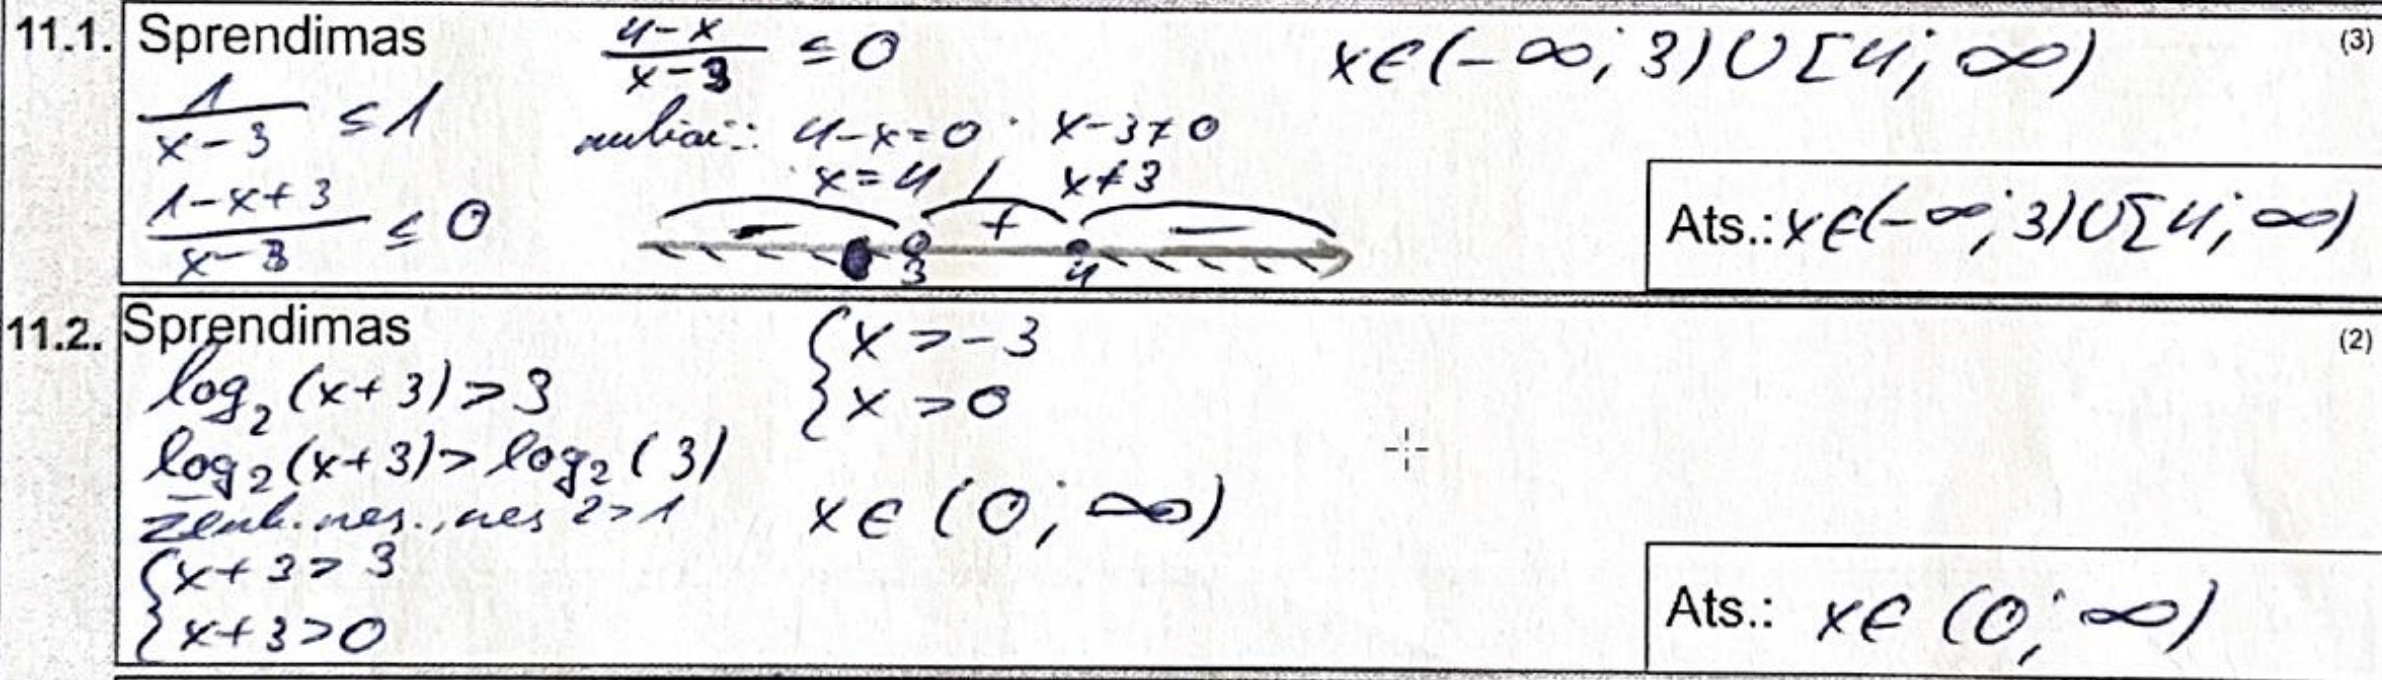 11.1. Sprendimas
\frac{1}{x-3} ≤ 1
\frac{1-x+3}{x-3} ≤ 0
\frac{4-x}{x-3} ≤ 0
4-x=0 x-3≠0
x=4 / x≠3
− + −
3 4
x∈(-∞; 3)∪[4; ∞)
(3)
Ats.: x∈(-∞; 3)∪[4; ∞)
11.2. Sprendimas
log₂(x+3)>3
log₂(x+3)>log₂(3)
Ženk. nes., nes 2>1
{x+3>3
{x+3>0
{x>-3
{x>0
x∈(0; ∞)
(2)
Ats.: x∈(0; ∞)